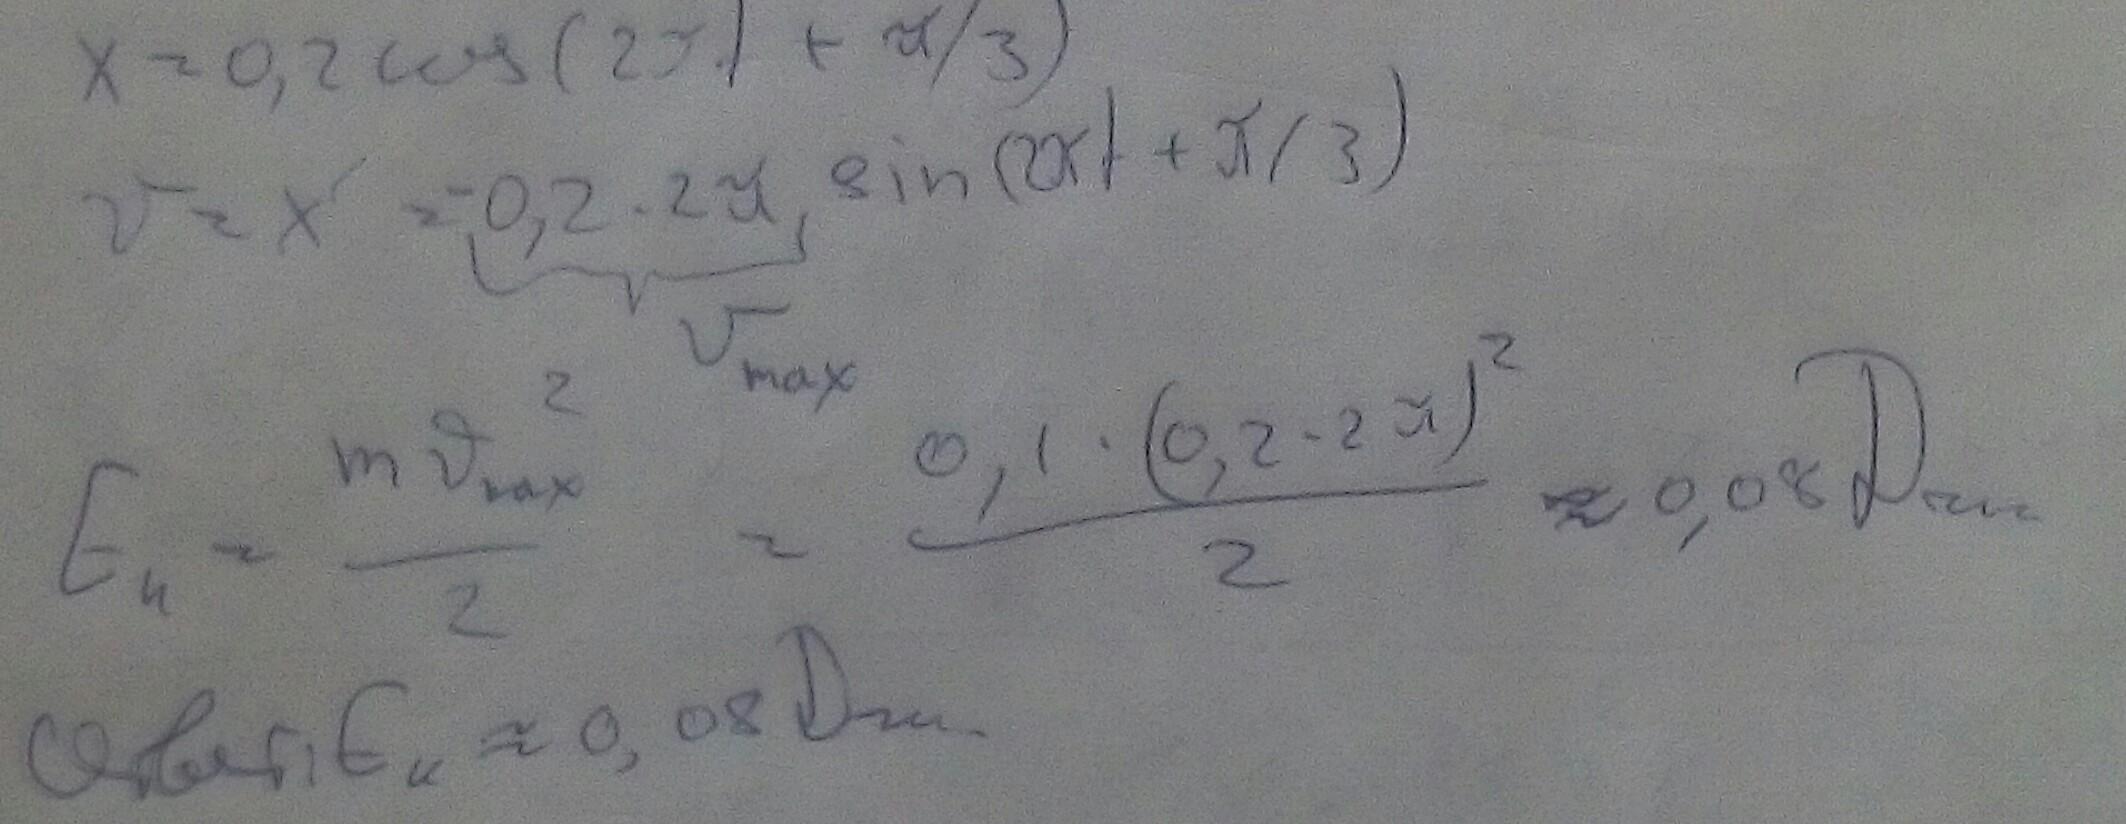 x = 0,2 cos(2πt + π/3)
v = x' = -0,2 · 2π sin(2πt + π/3)
v max
E к = m v max ² / 2 = 0,1 · (0,2 · 2π)² / 2 ≈ 0,08 Дж
Ответ: E к ≈ 0,08 Дж.